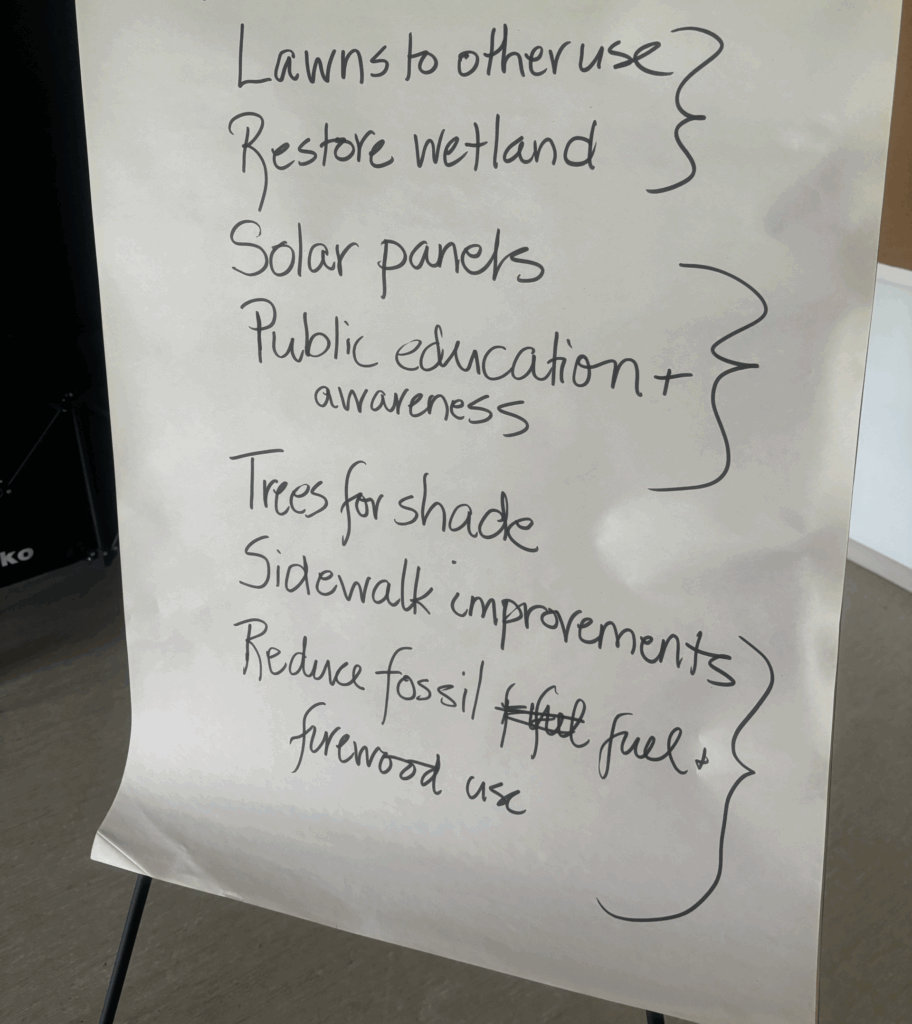 Lawns to other use
Restore wetland
Solar panels
Public education +
awareness
Trees for shade
Sidewalk improvements
Reduce fossil fuel +
firewood use
KO